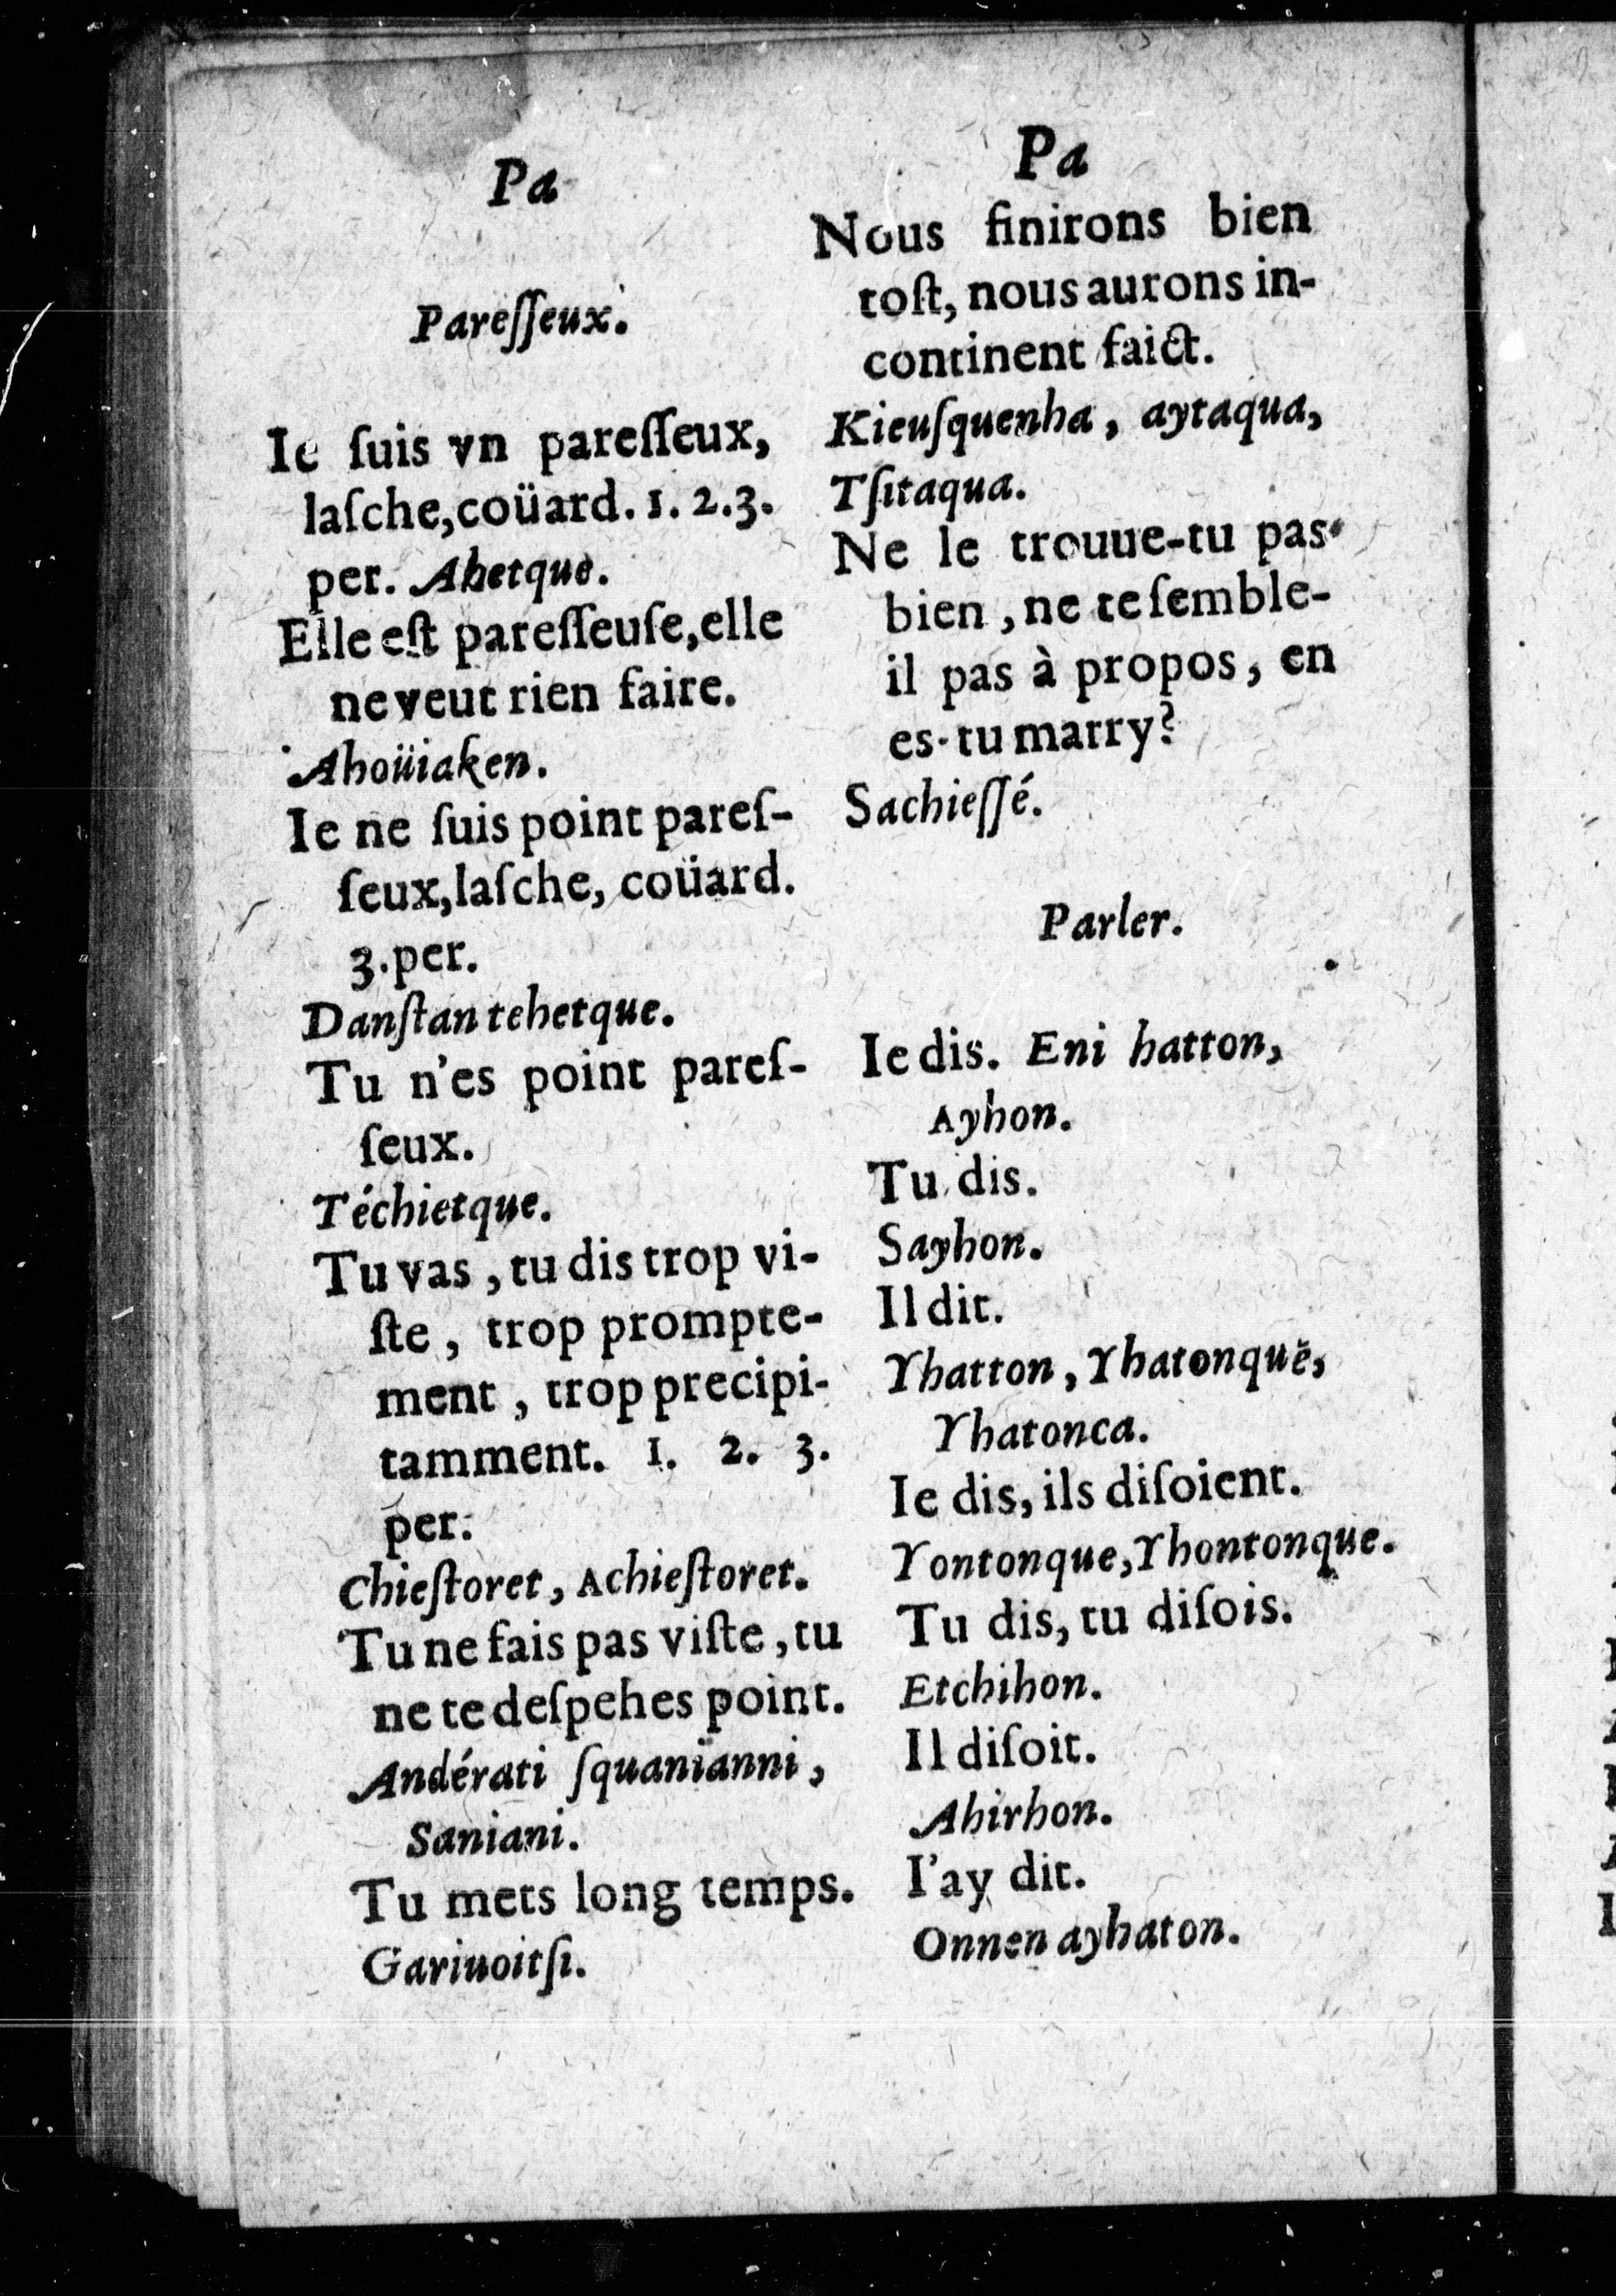 Pa
Pareſſeux.
Ie ſuis vn pareſſeux,
laſche, coüard. 1. 2. 3.
per. Ahetque.
Elle eſt pareſſeuſe, elle
ne veut rien faire.
Ahoüiaken.
Ie ne ſuis point pareſ-
ſeux, laſche, coüard.
3. per.
Danſtan tehetque.
Tu n'es point pareſ-
ſeux.
Téchietque.
Tu vas, tu dis trop vi-
ſte, trop prompte-
ment, trop precipi-
tamment. 1. 2. 3.
per.
Chieſtoret, Achieſtoret.
Tu ne fais pas viſte, tu
ne te deſpehes point.
Andérati ſquanianni,
Saniani.
Tu mets long temps.
Gariuoitſi.
Pa
Nous finirons bien
toſt, nous aurons in-
continent faict.
Kieuſquenha, aytaqua,
Tſitaqua.
Ne le trouue-tu pas
bien, ne te ſemble-
il pas à propos, en
es-tu marry?
Sachieſſé.
Parler.
Ie dis. Eni hatton,
Ayhon.
Tu dis.
Sayhon.
Il dit.
Yhatton, Yhatonque,
Yhatonca.
Ie dis, ils diſoient.
Yontonque, Yhontonque.
Tu dis, tu diſois.
Etchihon.
Il diſoit.
Ahirhon.
I'ay dit.
Onnen ayhaton.